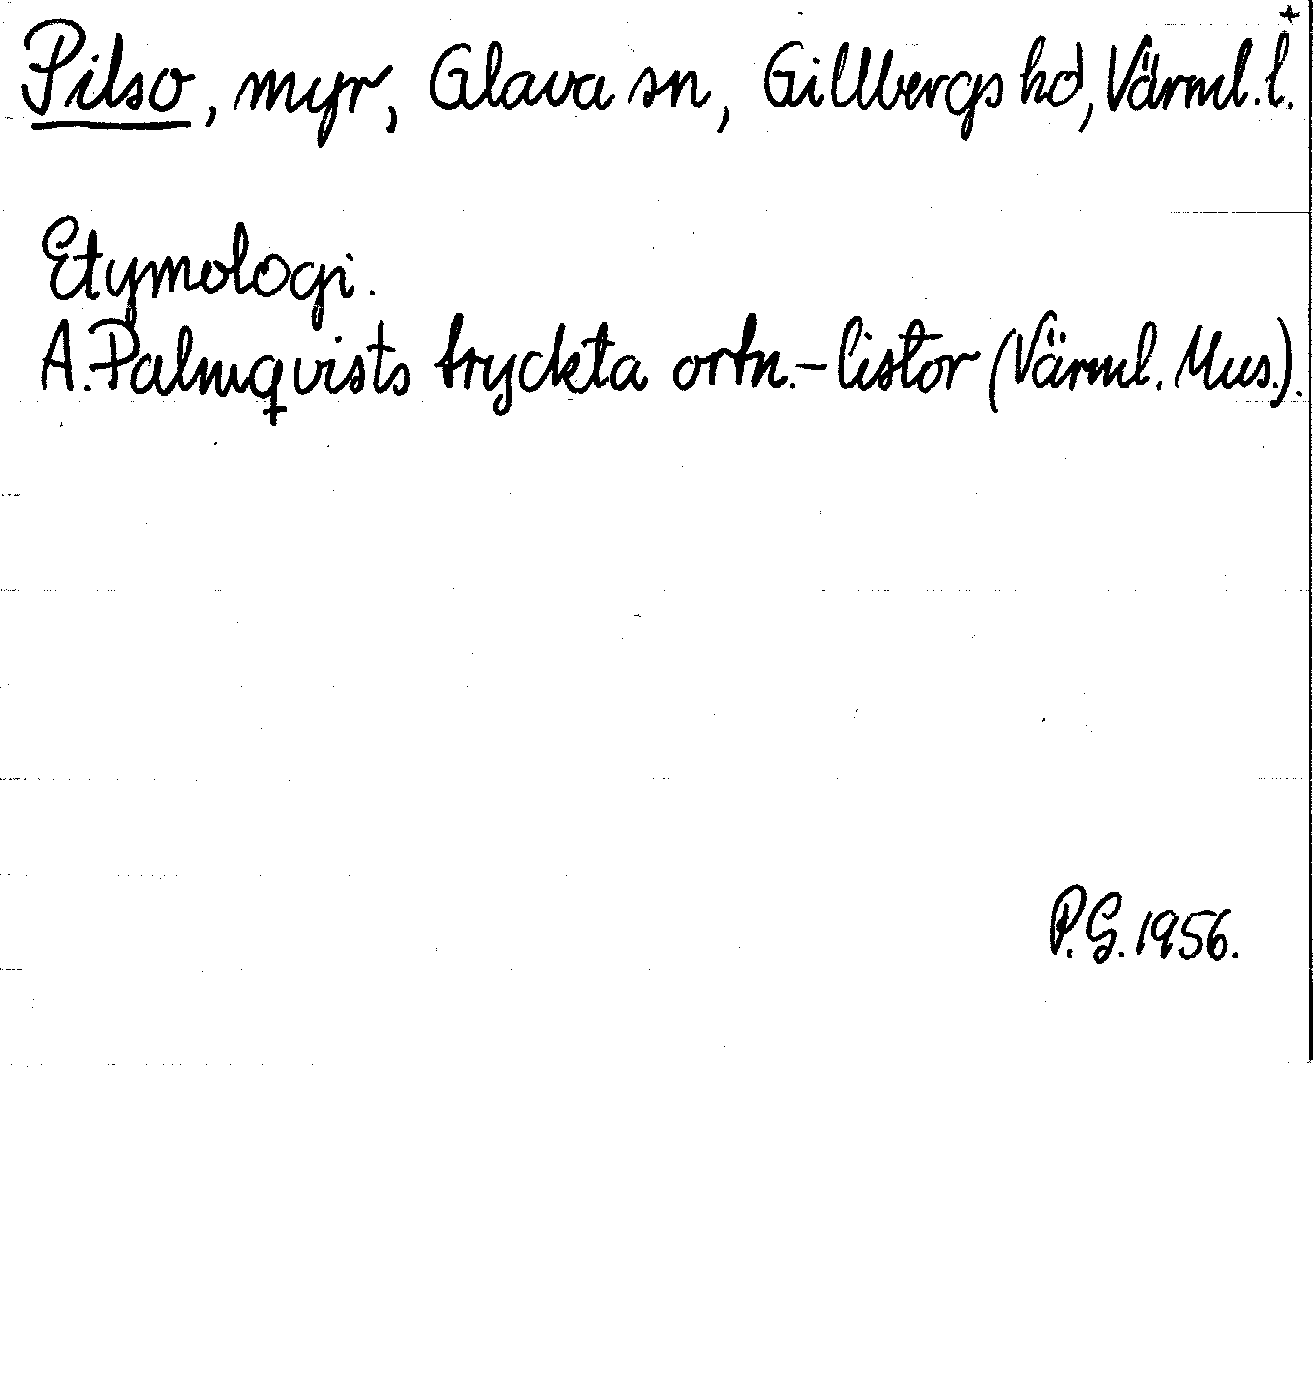 Pilso, myr, Glava sn, Gillbergs hd, Värml. l. +
Etymologi.
A. Palmqvists tryckta ortn.-listor (Värml. Mus.).
P.G. 1956.